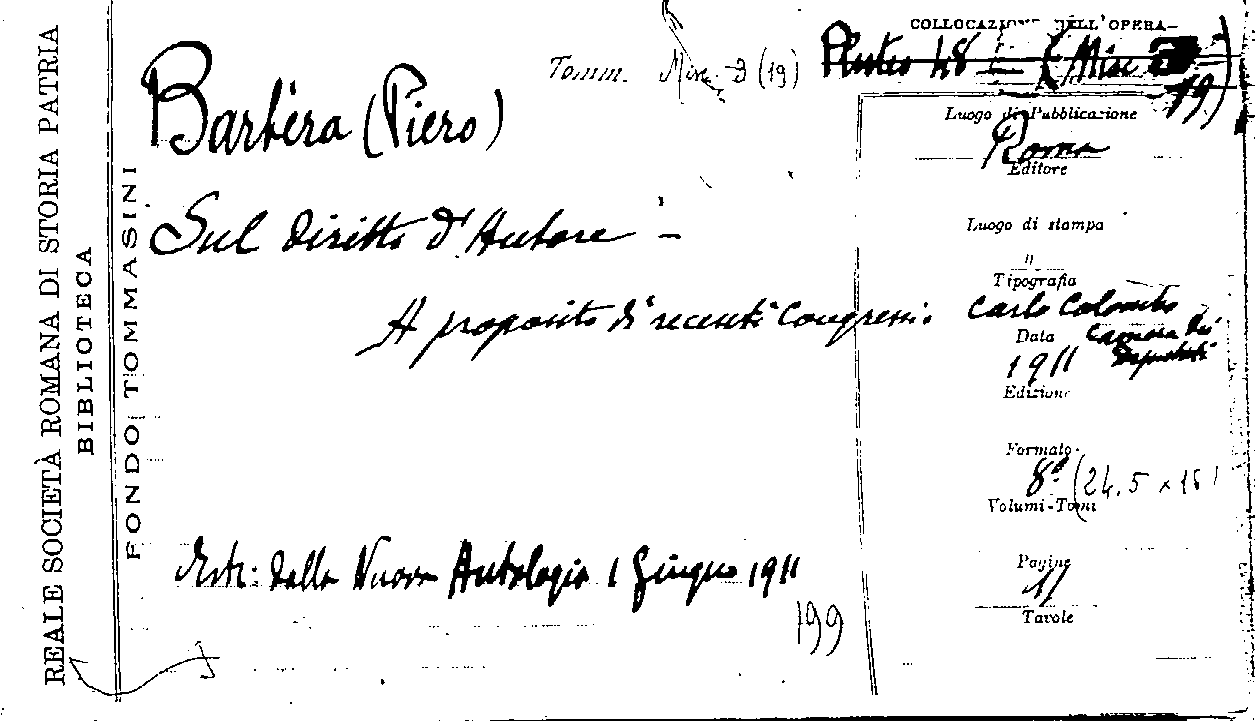 REALE SOCIETÀ ROMANA DI STORIA PATRIA
BIBLIOTECA
FONDO TOMMASINI
COLLOCAZIONE DELL'OPERA
Tomm. Misc. 9 (19) Pluteo 48 - (Misc 19)
Barbèra (Piero)
Sul diritto d'Autore -
A proposito di recenti Congressi.
Estr: dalla Nuova Antologia 1 Giugno 1911
199
Luogo di Pubblicazione
Roma
Editore
Luogo di stampa
"
Tipografia
Carlo Colombo
Camera dei
Deputati
Data
1911
Edizione
Formato
8° (24.5 x 16)
Volumi-Tomi
Pagine
11
Tavole